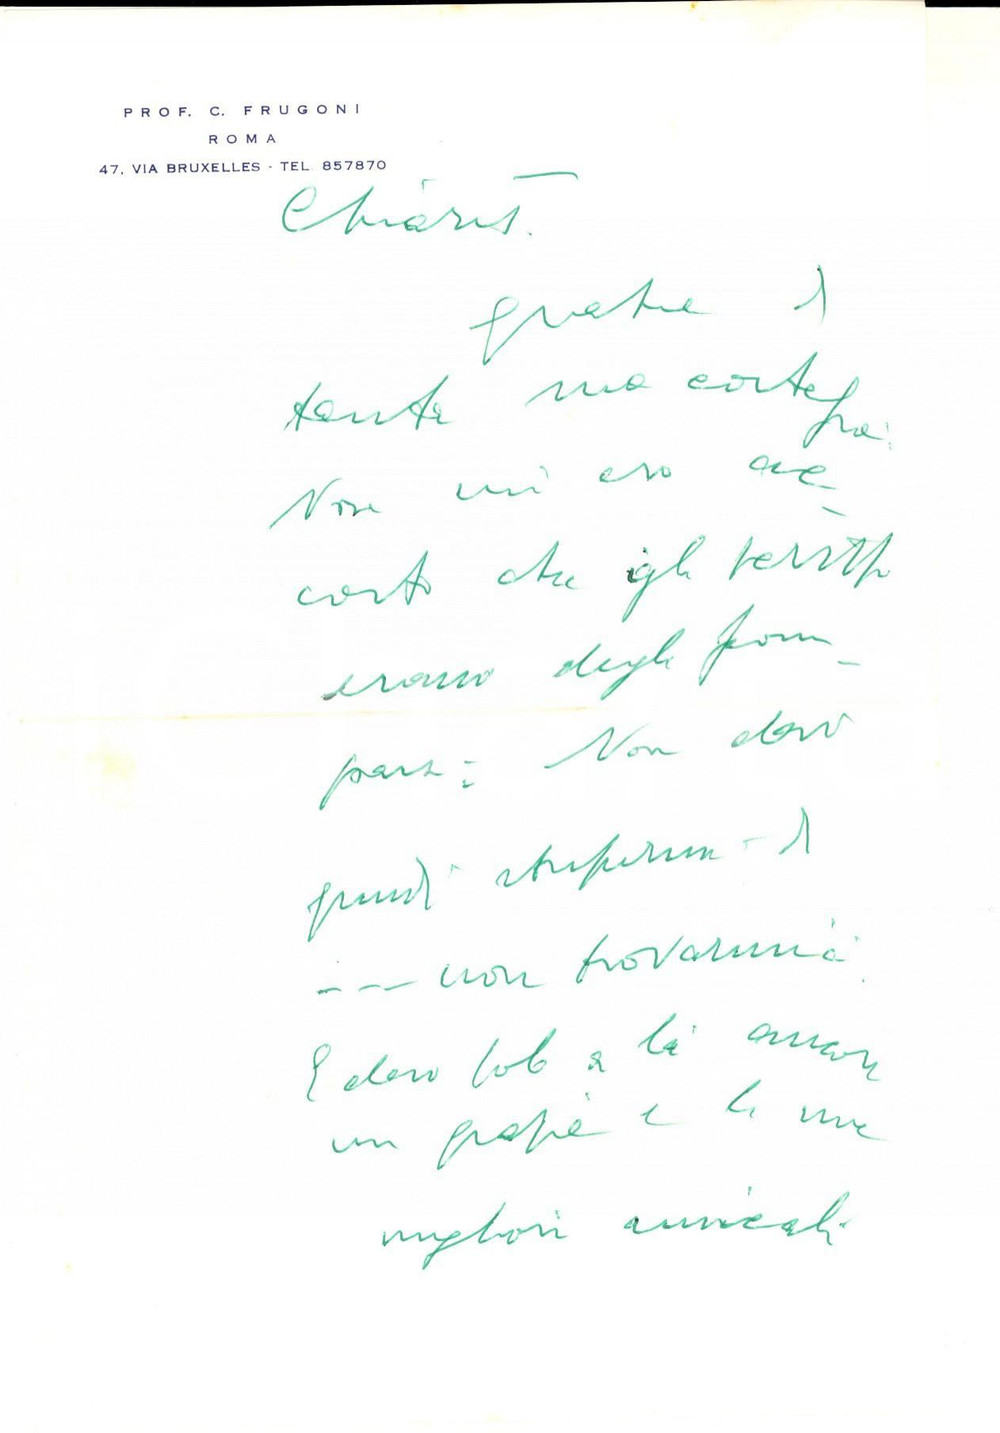 PROF. C. FRUGONI
ROMA
47, VIA BRUXELLES - TEL. 857870
Chiar
grazie di
tanta sua cortesia.
Non mi ero ac-
corto che gli
erano degli
Non devo
quindi stupirmi di
--- non trovarmici.
E devo solo a lei ancora
un grazie e le mie
migliori amicali